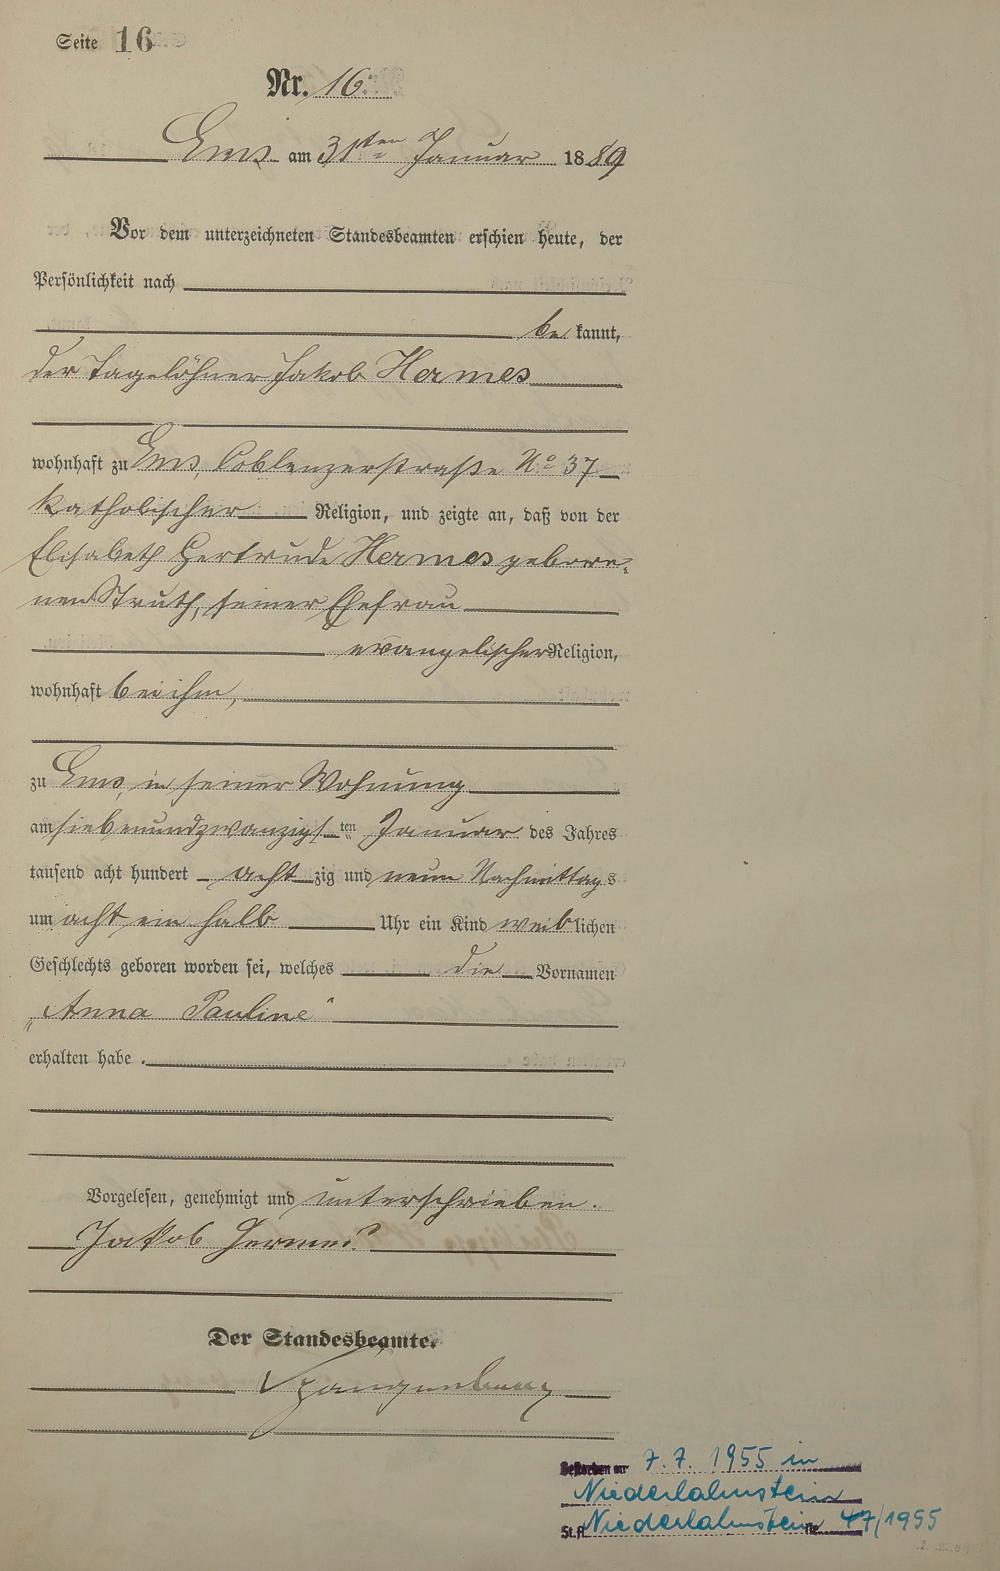 Seite 16
Nr. 16
Ems am 31ten Januar 1889
Vor dem unterzeichneten Standesbeamten erschien heute, der
Persönlichkeit nach
bekannt,
der Tagelöhner Jakob Hermes
wohnhaft zu Ems, Coblenzerstraße No 37
katholischer Religion, und zeigte an, daß von der
Elisabeth Gertrude Hermes gebore-
nen Struth, seiner Ehefrau
evangelischer Religion,
wohnhaft bei ihm,
zu Ems, in seiner Wohnung
am siebenundzwanzigsten Januar des Jahres
tausend acht hundert achtzig und neun Nachmittags
um acht ein halb Uhr ein Kind weiblichen
Geschlechts geboren worden sei, welches die Vornamen
„Anna Pauline“
erhalten habe.
Vorgelesen, genehmigt und unterschrieben.
Jakob Hermes
Der Standesbeamte.
Spangenberg
Gestorben am 7.7.1955 in
Niederlahnstein
St.A. Niederlahnstein Nr. 47/1955